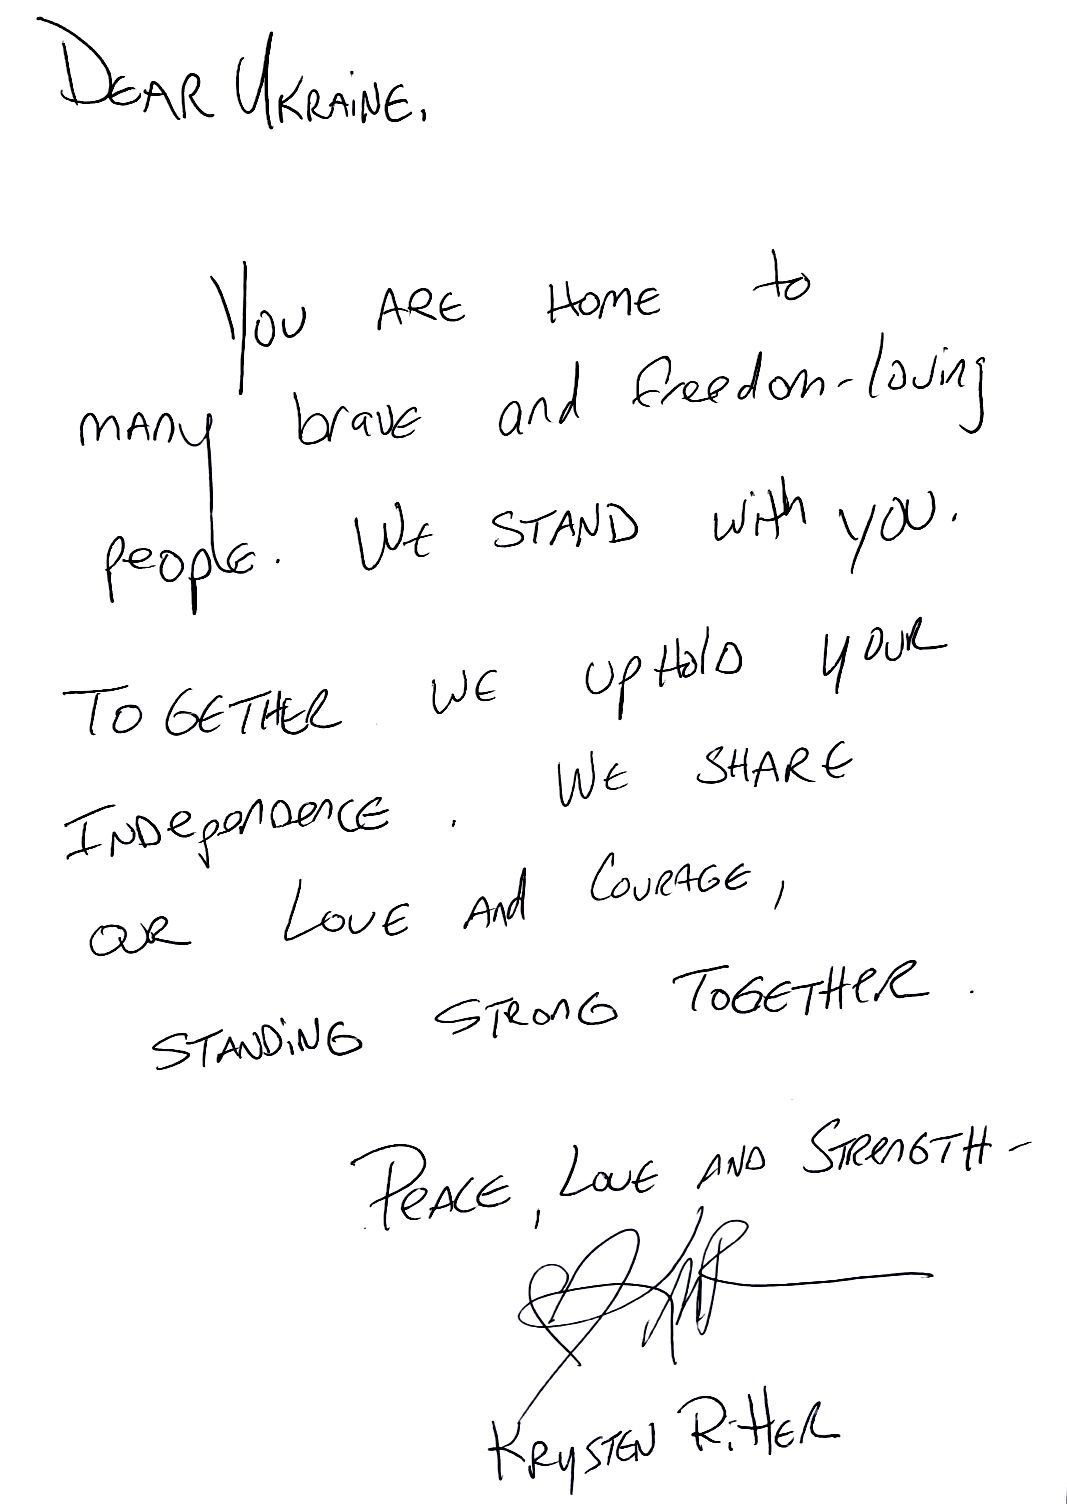 DEAR UKRAINE,
YOU ARE HOME to
MANY brave and freedom-loving
people. WE STAND with you.
TOGETHER WE UPHOLD YOUR
INDEPENDENCE. WE SHARE
OUR LOVE AND COURAGE,
STANDING STRONG TOGETHER.
PEACE, LOVE AND STRENGTH-
KRYSTEN RITTER